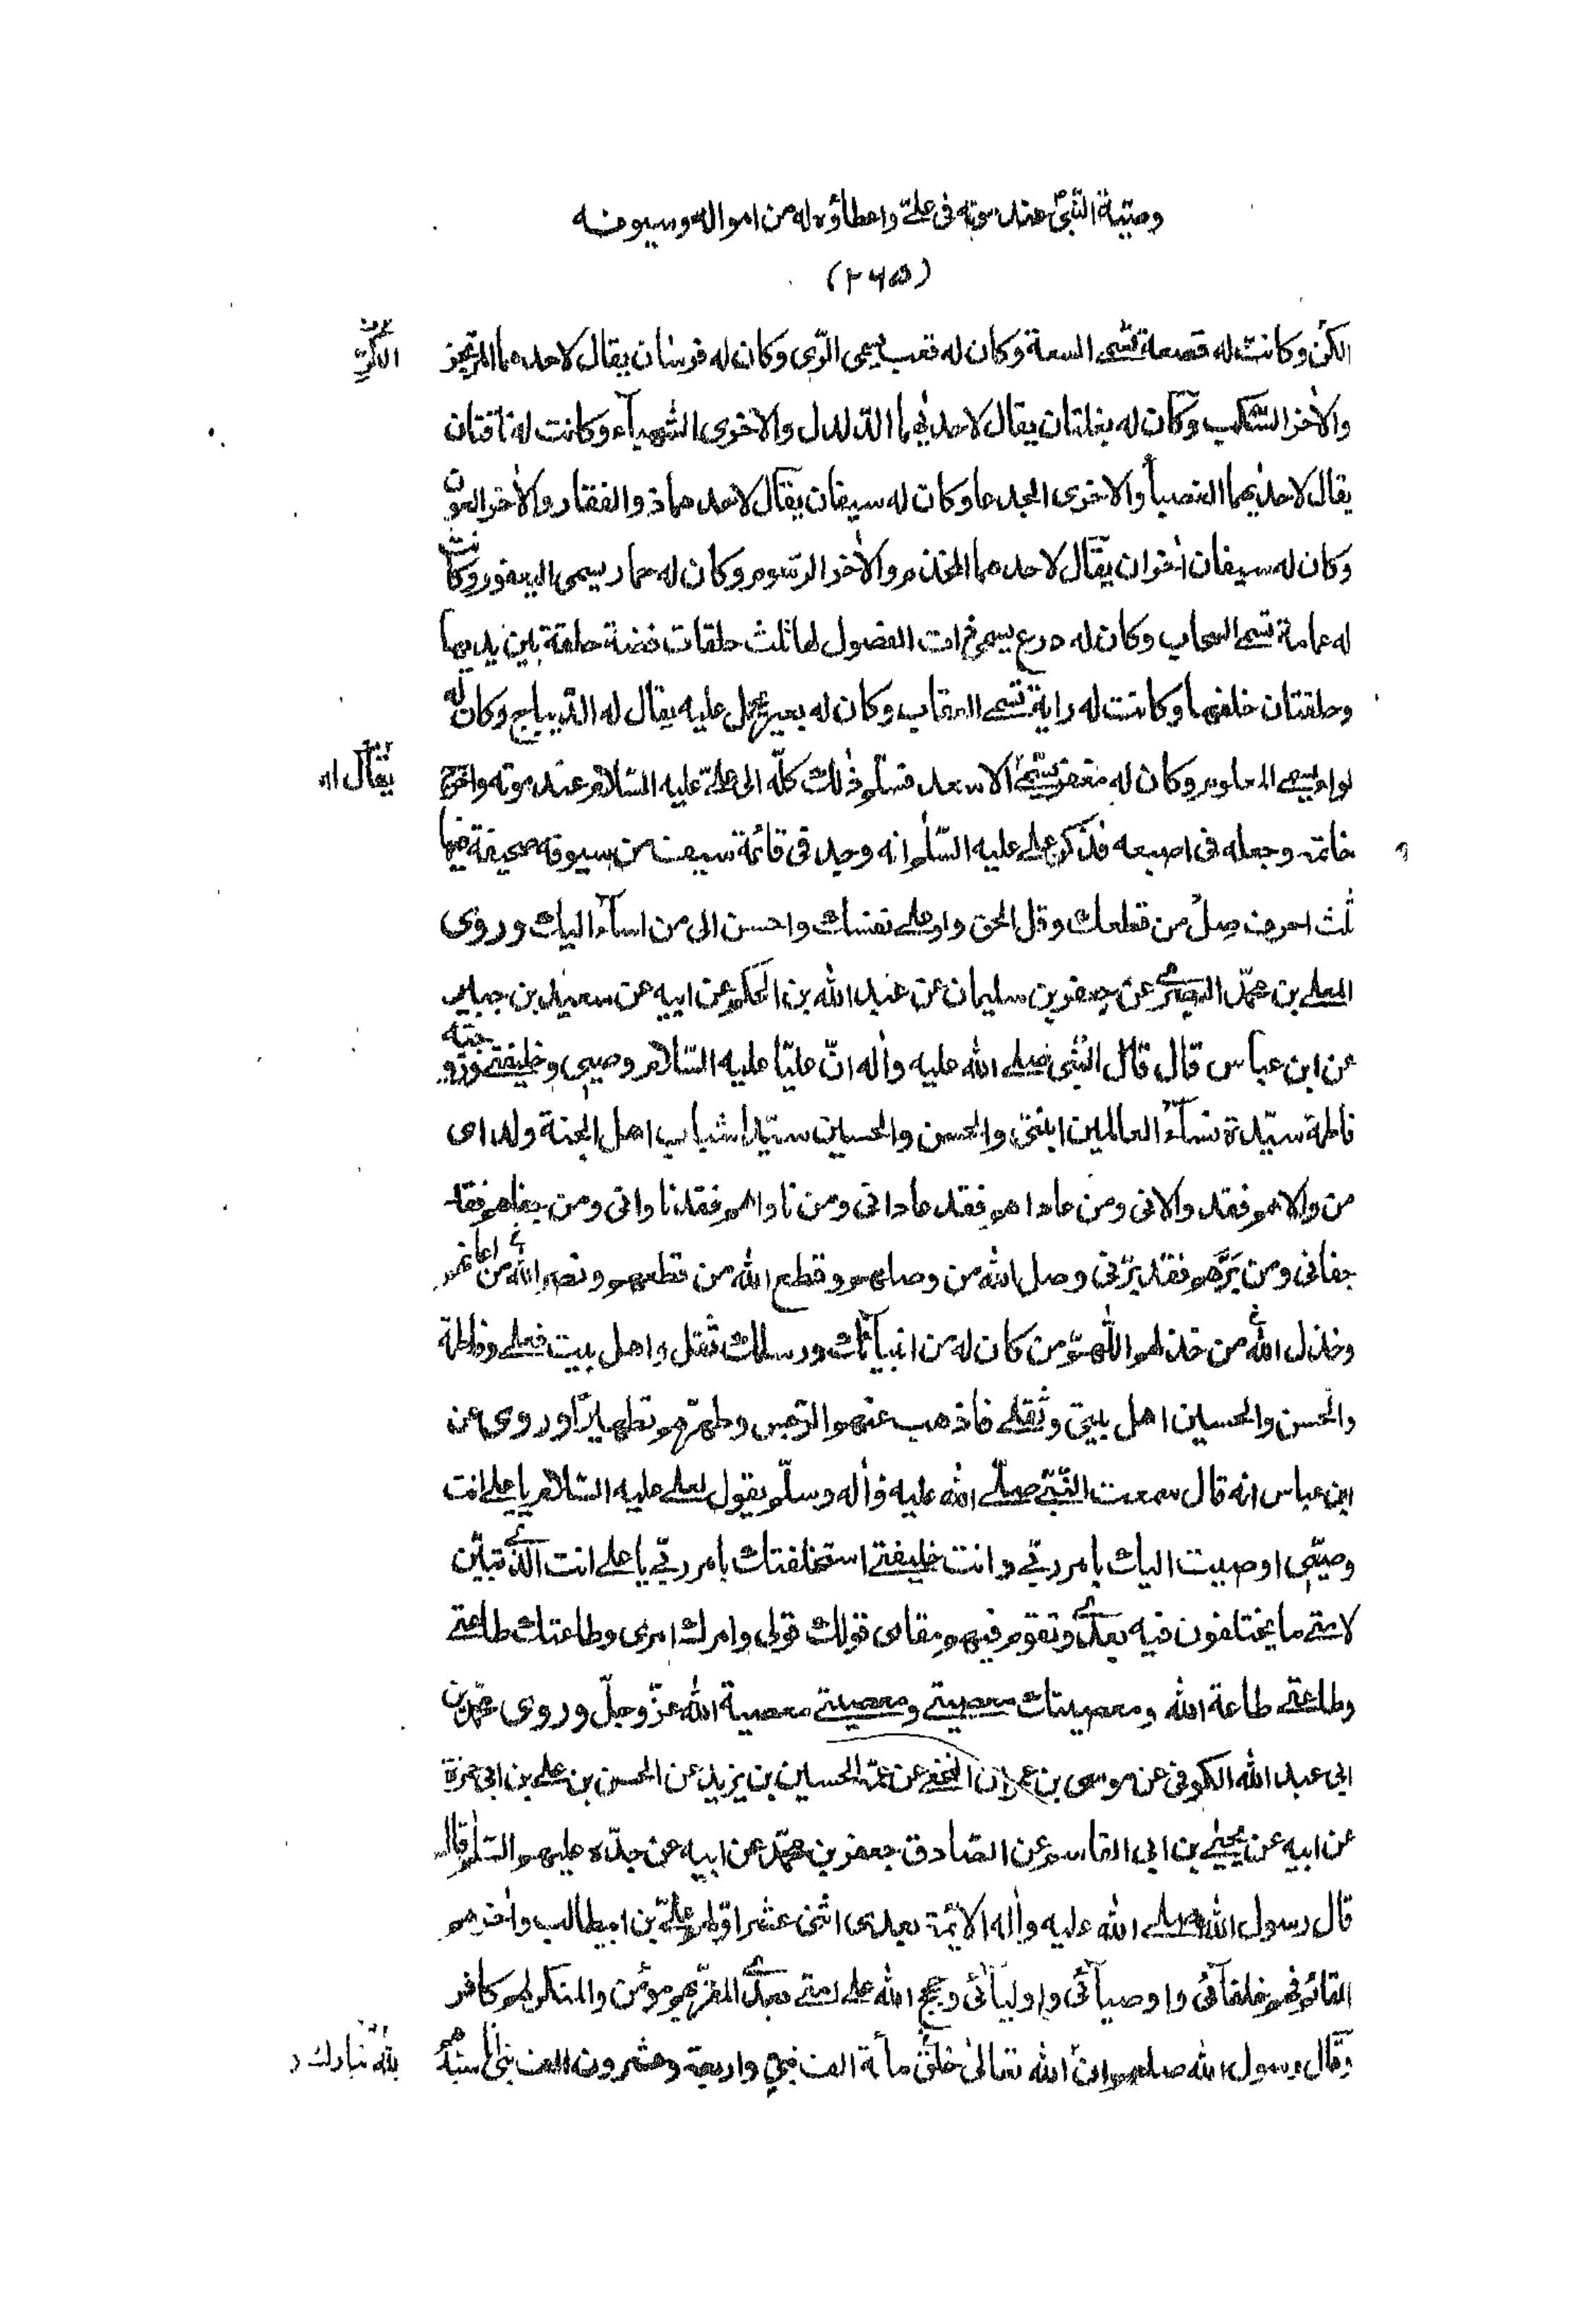 وصيّة النّبيّ عند موته فى علىّ واعطاؤه له من امواله وسيوفه
(۲۶۵)
الكن وكانت له قصعة تسمى السعة وكان له قعب يسمى الرّى وكان له فرسان يقال لاحدهما المرتجز
والاٰخر السّكب وكان له بغلتان يقال لاحديهما الدّلدل والاخرى الشهباۤء وكانت له ناقتان
يقال لاحديهما العضباۤ والاخرى الجدعا وكان له سيفان يقال لاحدهما ذوالفقار والاٰخر العون
وكان له سيفان اٰخران يقال لاحدهما المخذم والاٰخر الرّسوم وكان له حمار يسمى اليعفور وكانت
له عمامة تسمى السحاب وكان له درع يسمى ذات الفضول لها ثلث حلقات فضة حلقة بين يديها
وحلقتان خلفها وكانت له راية تسمى العقاب وكان له بعير يحمل عليه يقال له الدّيباج وكان له
لواء يسمى المعلوم وكان له مغفر يسمّى الاسعد فسلّم ذٰلك كلّه الى علىّ عليه السّلام عند موته واخرج
يقال له
خاتمه وجعله فى اصبعه فذكر على عليه السّلٰم انه وجد فى قائمة سيف من سيوفه صحيفة فيها
ثلث احرف صِلْ من قطعك وقل الحق ولو على نفسك واحسن الى من اساۤء اليك وروى
المعلى بن محمّد البصرى عن جعفر بن سليمان عن عبد الله بن الحكم عن ابيه عن سعيد بن جبير
عن ابن عباس قال قال النّبى صلى الله عليه واٰله انّ عليّا عليه السّلام وصيى وخليفتى وزوجته
فاطمة سيّدة نساۤء العالمين ابنتى والحسن والحسين سيّدا شباب اهل الجنة ولداى
من والاهم فقد والانى ومن عاداهم فقد عادانى ومن ناواهم فقد ناوانى ومن جفاهم فقد
جفانى ومن بَرَّهم فقد برّنى وصل الله من وصلهم وقطع الله من قطعهم ونصر الله من اعانهم
وخذل الله من خذلهم اللّٰهمّ من كان له من انبياۤئك ورسلك ثقل واهل بيت فعلى وفاطمة
والحسن والحسين اهل بيتى وثقلى فاذهب عنهم الرّجس وطهّرهم تطهيرًا وروى عن
ابن عباس انه قال سمعت النّبىّ صلّى الله عليه واٰله وسلّم يقول لعلى عليه السّلام يا على انت
وصيّى اوصيت اليك بامر ربّى وانت خليفتى استخلفتك بامر ربّى يا على انت الّذى تبيّن
لامتى ما يختلفون فيه بعدى وتقوم فيهم مقامى قولك قولى وامرك امرى وطاعتك طاعتى
وطاعتى طاعة الله ومعصيتك معصيتى ومعصيتى معصية الله عزّ وجلّ وروى محمّد بن
ابى عبد الله الكوفى عن موسى بن عمران النخعى عن عمّه الحسين بن يزيد عن الحسن بن على بن ابى حمزة
عن ابيه عن يحيى بن ابى القاسم عن الصّادق جعفر بن محمّد عن ابيه عن جدّه عليهم السّلٰم قال
قال رسول الله صلى الله عليه واٰله الائمّة بعدى اثنى عشر اوّلهم علىّ بن ابيطالب واٰخرهم
القائم فهم خلفاۤئى واوصياۤئى واولياۤئى وحجج الله على امتى بعدى المقرّ بهم مؤمن والمنكر لهم كافر
وقال رسول الله صلعم انّ الله تعالىٰ خلق مأة الف نبىّ واربعة وعشرون الف نبىّ